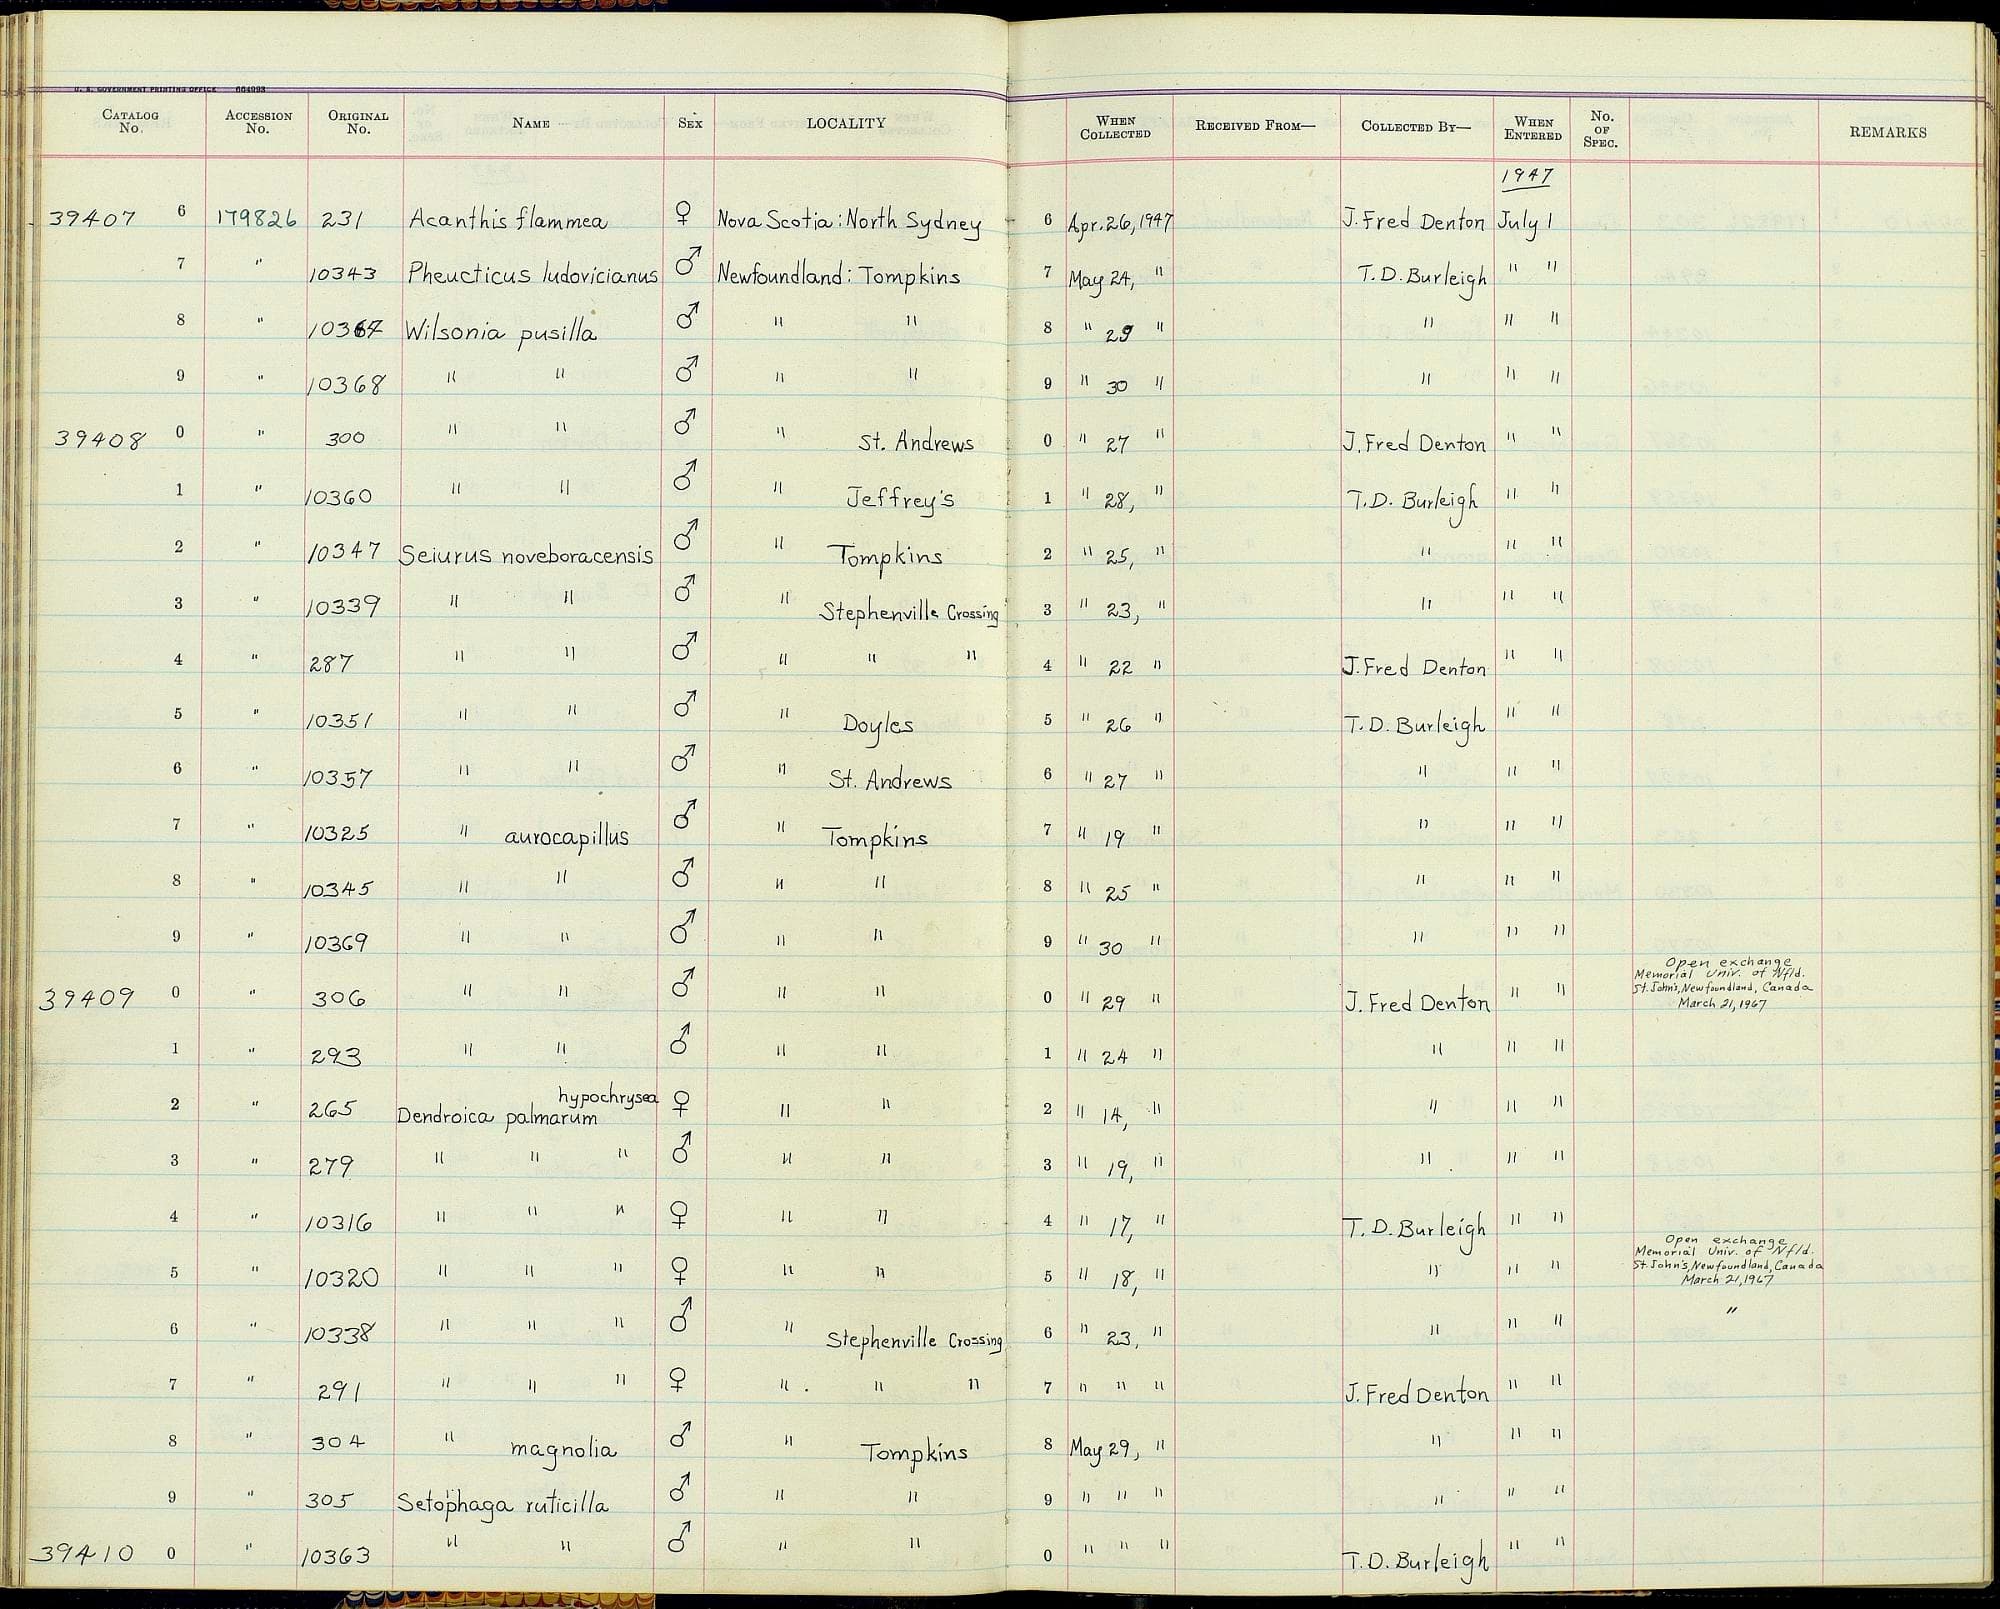 U. S. GOVERNMENT PRINTING OFFICE 664993
CATALOG No. ACCESSION No. ORIGINAL No. NAME SEX LOCALITY WHEN COLLECTED RECEIVED FROM— COLLECTED BY— WHEN ENTERED No. OF SPEC. REMARKS
1947
39407 6 179826 231 Acanthis flammea ♀ Nova Scotia: North Sydney 6 Apr. 26, 1947 J. Fred Denton July 1
7 " 10343 Pheucticus ludovicianus ♂ Newfoundland: Tompkins 7 May 24, " T. D. Burleigh " "
8 " 10367 Wilsonia pusilla ♂ " " 8 " 29 " " " "
9 " 10368 " " ♂ " " 9 " 30 " " " "
39408 0 " 300 " " ♂ " St. Andrews 0 " 27 " J. Fred Denton " "
1 " 10360 " " ♂ " Jeffrey's 1 " 28, " T. D. Burleigh " "
2 " 10347 Seiurus noveboracensis ♂ " Tompkins 2 " 25, " " " "
3 " 10339 " " ♂ " Stephenville Crossing 3 " 23, " " " "
4 " 287 " " ♂ " " " 4 " 22 " J. Fred Denton " "
5 " 10351 " " ♂ " Doyles 5 " 26 " T. D. Burleigh " "
6 " 10357 " " ♂ " St. Andrews 6 " 27 " " " "
7 " 10325 " aurocapillus ♂ " Tompkins 7 " 19 " " " "
8 " 10345 " " ♂ " " 8 " 25 " " " "
9 " 10369 " " ♂ " " 9 " 30 " " " "
39409 0 " 306 " " ♂ " " 0 " 29 " J. Fred Denton " "
Open exchange
Memorial Univ. of Nfld.
St. John's, Newfoundland, Canada
March 21, 1967
1 " 293 " " ♂ " " 1 " 24 " " " "
hypochrysea
2 " 265 Dendroica palmarum ♀ " " 2 " 14, " " " "
3 " 279 " " " ♂ " " 3 " 19, " " " "
4 " 10316 " " " ♀ " " 4 " 17, " T. D. Burleigh " "
5 " 10320 " " " ♀ " " 5 " 18, " " " "
Open exchange
Memorial Univ. of Nfld.
St. John's, Newfoundland, Canada
March 21, 1967
6 " 10338 " " " ♂ " Stephenville Crossing 6 " 23, " " " " "
7 " 291 " " " ♀ " " " 7 " " " J. Fred Denton " "
8 " 304 " magnolia ♂ " Tompkins 8 May 29, " " " "
9 " 305 Setophaga ruticilla ♂ " " 9 " " " " " "
39410 0 " 10363 " " ♂ " " 0 " " " T. D. Burleigh " "